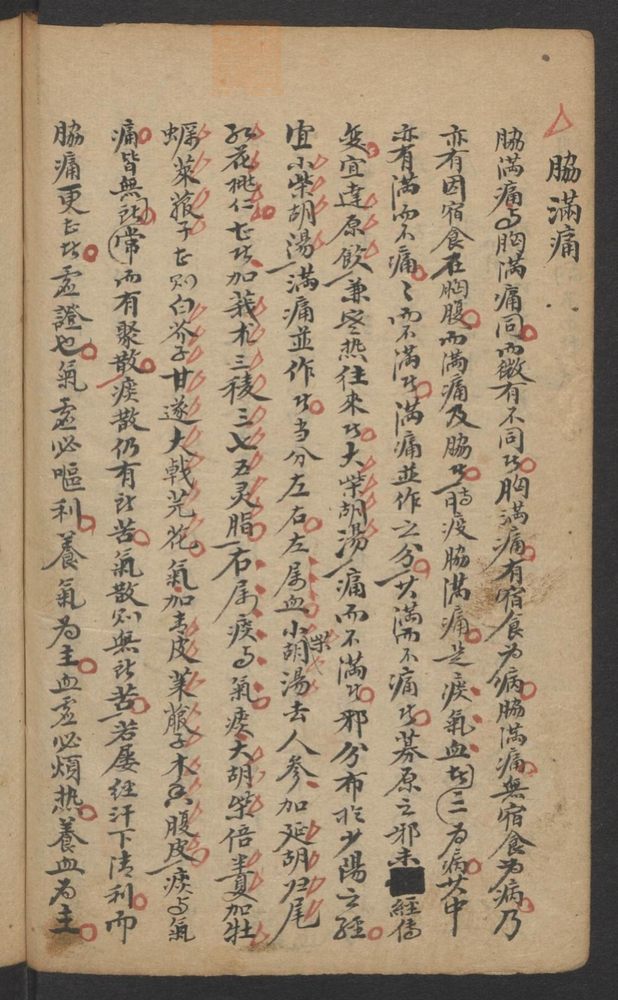 脇滿痛
脇滿痛与胸滿痛同而微有不同者胸滿痛有宿食为病脇滿痛無宿食为病乃
亦有因宿食在胸腹而滿痛及脇者時疫脇滿痛是痰氣血者三为病其中
亦有滿而不痛痛而不滿者滿痛並作之分其滿而不痛者募原之邪未經傳
变宜達原飲兼寒热往来者大柴胡湯痛而不滿者邪分布於少陽之經
宜小柴胡湯滿痛並作者当分左右左属血小柴胡湯去人参加延胡归尾
红花桃仁甚者加莪术三稜三七五灵脂右属痰与氣痰大胡柴倍半夏加牡
蠣莱菔子甚则白芥子甘遂大戟芫花氣加青皮莱菔子木香腹皮痰与氣
痛皆無形常而有聚散痰散仍有形苦氣散则無形苦若屡经汗下清利而
脇痛更甚者虚證也氣虚必嘔利養氣为主血虚必煩热養血为主